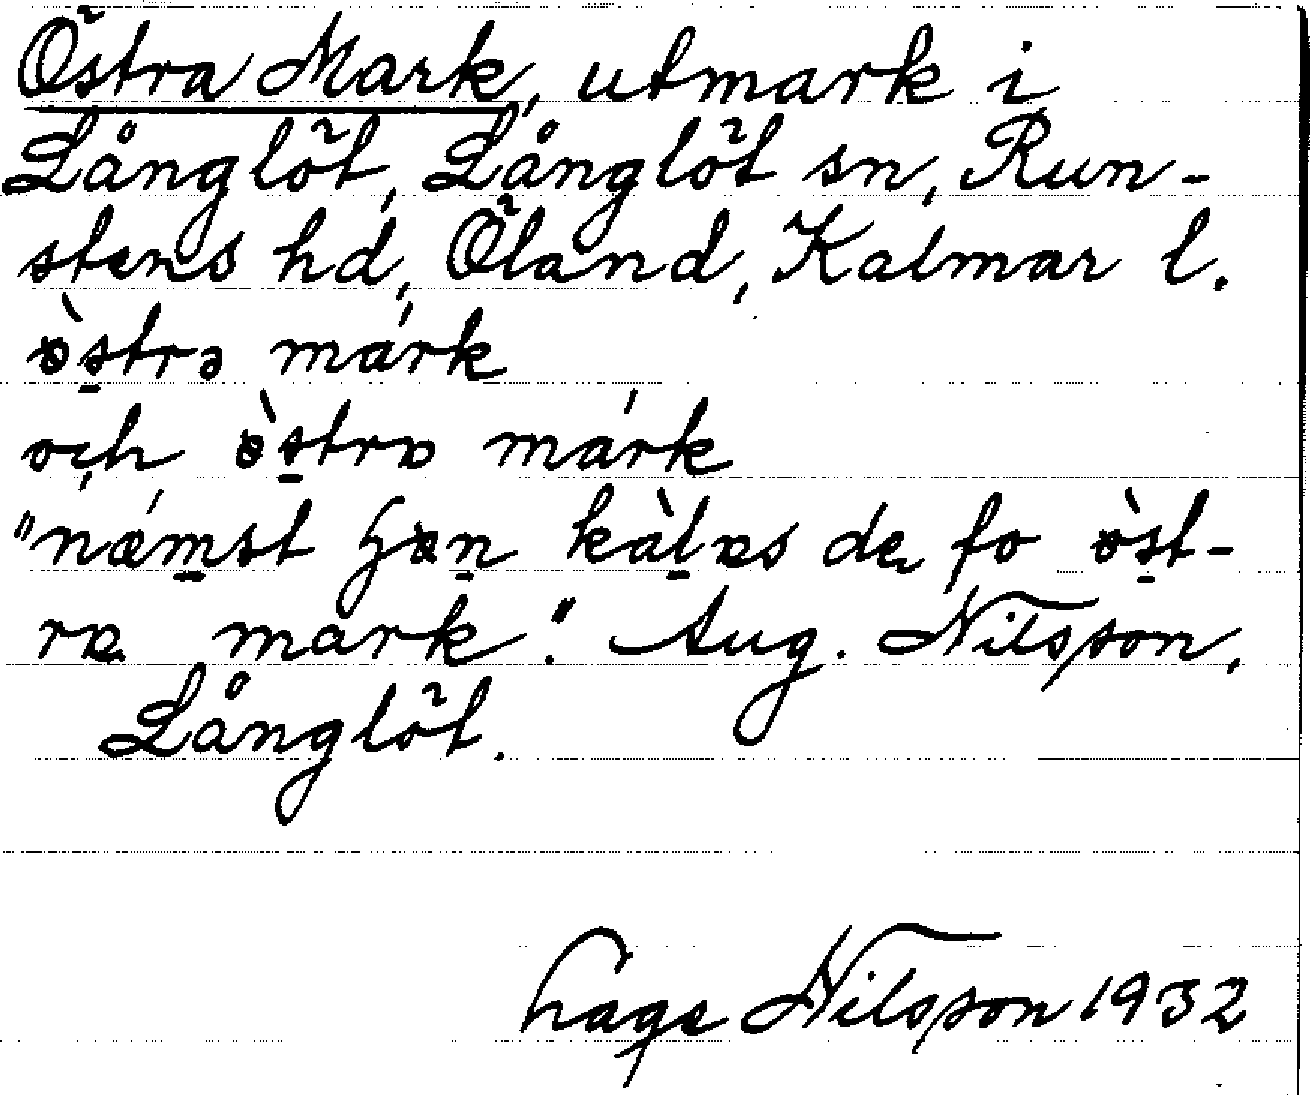 Östra Mark, utmark i
Långlöt, Långlöt sn, Run-
stens hd, Öland, Kalmar l.
ø̀s̱trə márk
och ø̀s̱trɒ márk
"næ̀m̱st hæṉ kàḻɒs de fo øs̱t-
rɒ mark". Aug. Nilsson,
Långlöt.
Hage Nilsson 1932